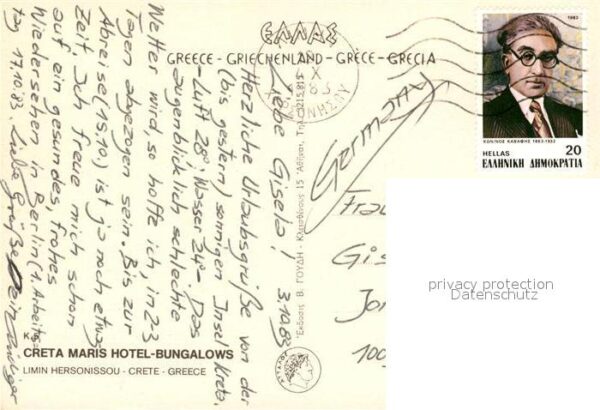 ΕΛΛΑΣ
GREECE - GRIECHENLAND - GRÈCE - GRECIA
Liebe Gisela! 3.10.83
Herzliche Urlaubsgrüße von der
(bis gestern) sonnigen Insel Kreta.
- Luft 28°, Wasser 24° - Das
augenblicklich schlechte
Wetter wird, so hoffe ich, in 2-3
Tagen abgezogen sein. Bis zur
Abreise (15.10) ist ja noch etwas
Zeit. Ich freue mich schon
auf ein gesundes, frohes
Wiedersehen in Berlin (1. Arbeits-
tag 17.10.83. Liebe Grüße Dein
CRETA MARIS HOTEL-BUNGALOWS
LIMIN HERSONISSOU - CRETE - GREECE
Ἐκδοσις Β. ΓΟΥΔΗ - Κλεισθένους 15 Ἀθῆναι,
Germany
Frau
Gis
Jo
100
X
83
1983
ΚΩΝ/ΝΟΣ ΚΑΒΑΦΗΣ 1863-1933
HELLAS 20
ΕΛΛΗΝΙΚΗ ΔΗΜΟΚΡΑΤΙΑ
privacy protection
Datenschutz